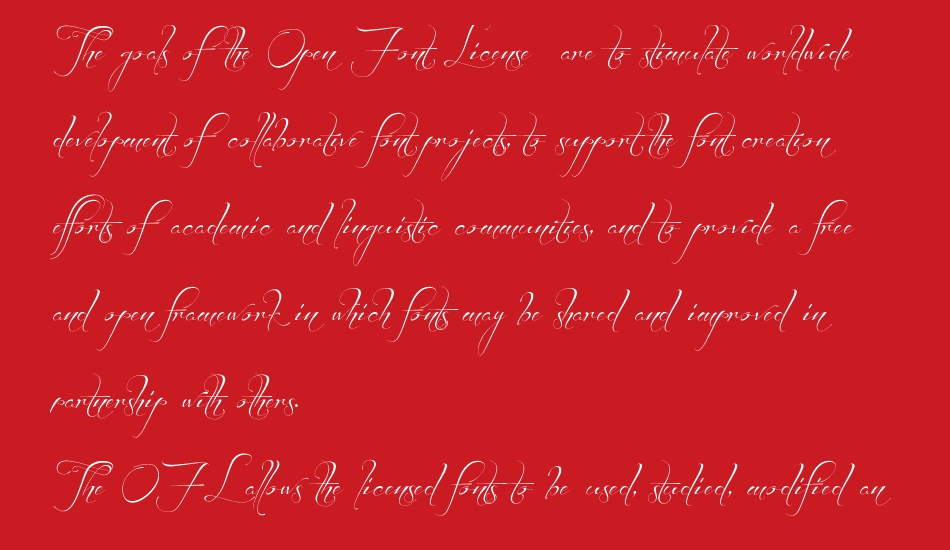 The goals of the Open Font License are to stimulate worldwide
development of collaborative font projects, to support the font creation
efforts of academic and linguistic communities, and to provide a free
and open framework in which fonts may be shared and improved in
partnership with others.
The OFL allows the licensed fonts to be used, studied, modified an